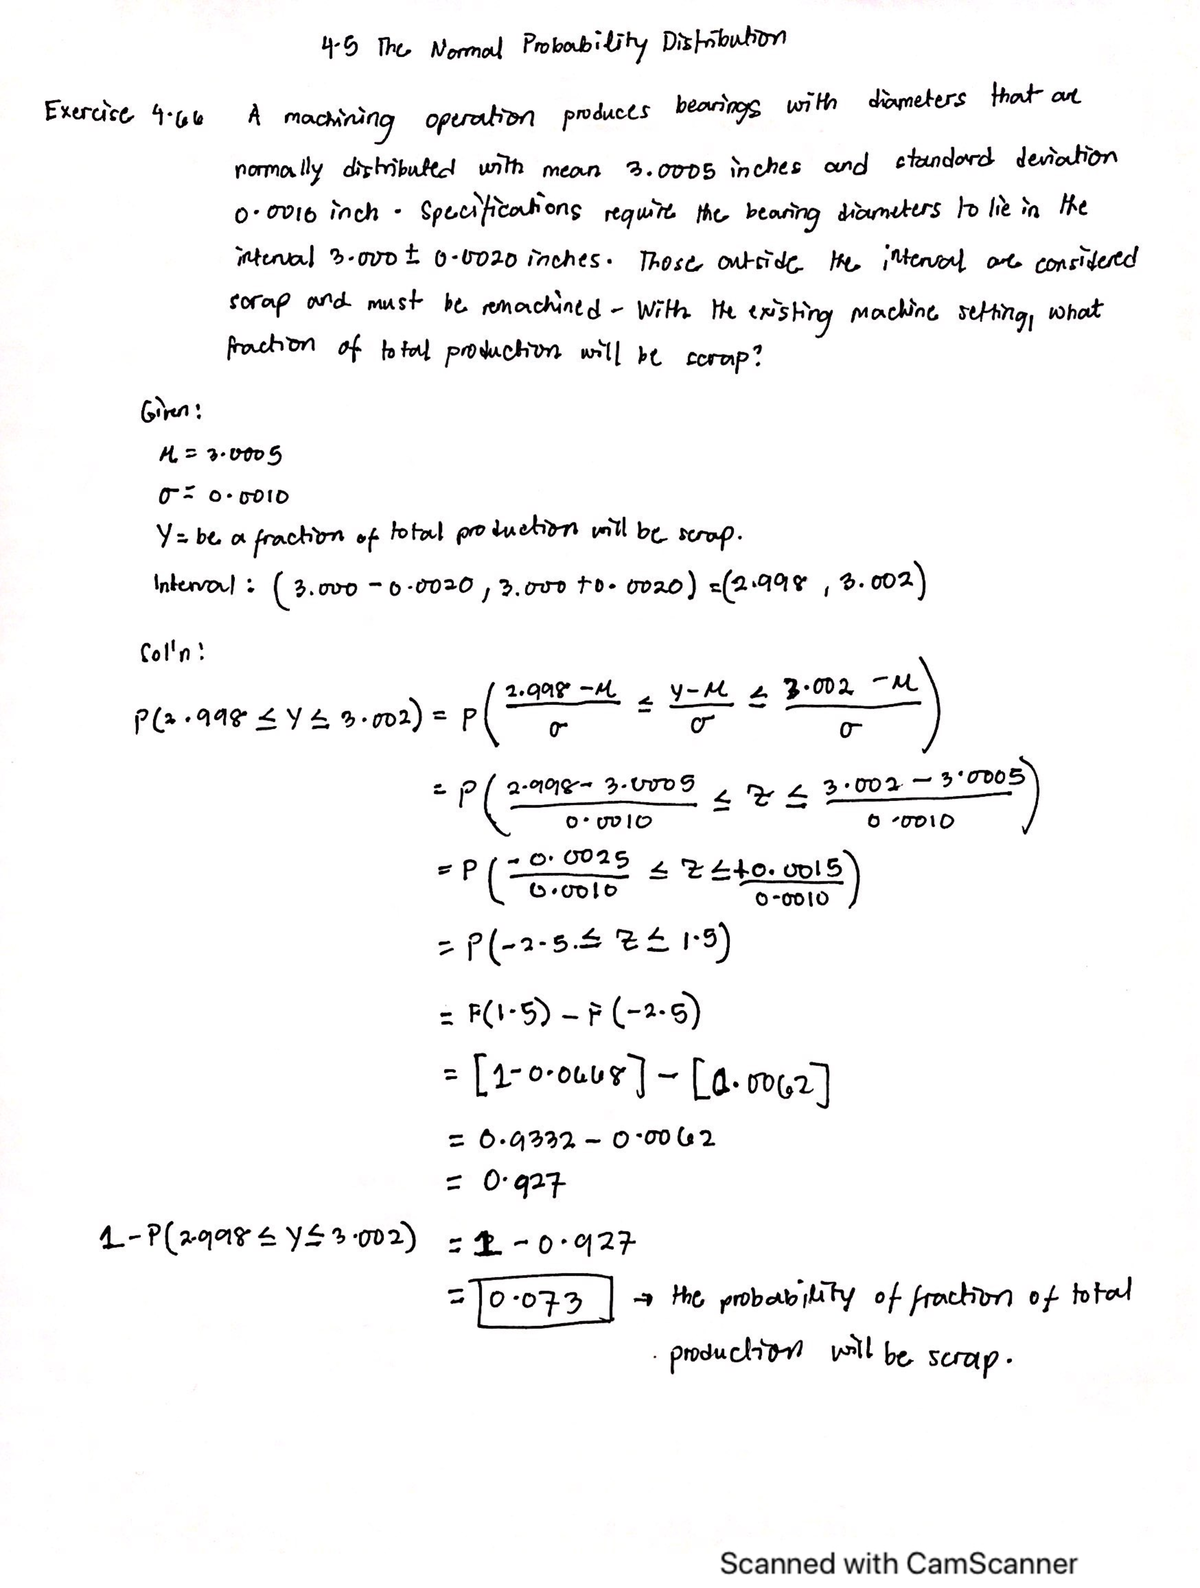 4-5 The Normal Probability Distribution
Exercise 4.66 A machining operation produces bearings with diameters that are
normally distributed with mean 3.0005 inches and standard deviation
0.0010 inch. Specifications require the bearing diameters to lie in the
interval 3.000 ± 0.0020 inches. Those outside the interval are considered
scrap and must be remachined - With the existing machine setting, what
fraction of total production will be scrap?
Given:
μ = 3.0005
σ = 0.0010
Y = be a fraction of total production will be scrap.
Interval : (3.000 - 0.0020, 3.000 + 0.0020) = (2.998, 3.002)
Sol'n:
P(2.998 ≤ Y ≤ 3.002) = P((2.998 - μ)/σ ≤ (Y - μ)/σ ≤ (3.002 - μ)/σ)
= P((2.998 - 3.0005)/0.0010 ≤ Z ≤ (3.002 - 3.0005)/0.0010)
= P(-0.0025/0.0010 ≤ Z ≤ +0.0015/0.0010)
= P(-2.5 ≤ Z ≤ 1.5)
= F(1.5) - F(-2.5)
= [1-0.0668] - [0.0062]
= 0.9332 - 0.0062
= 0.927
1-P(2.998 ≤ Y ≤ 3.002) = 1 - 0.927
= 0.073 → the probability of fraction of total
production will be scrap.
Scanned with CamScanner